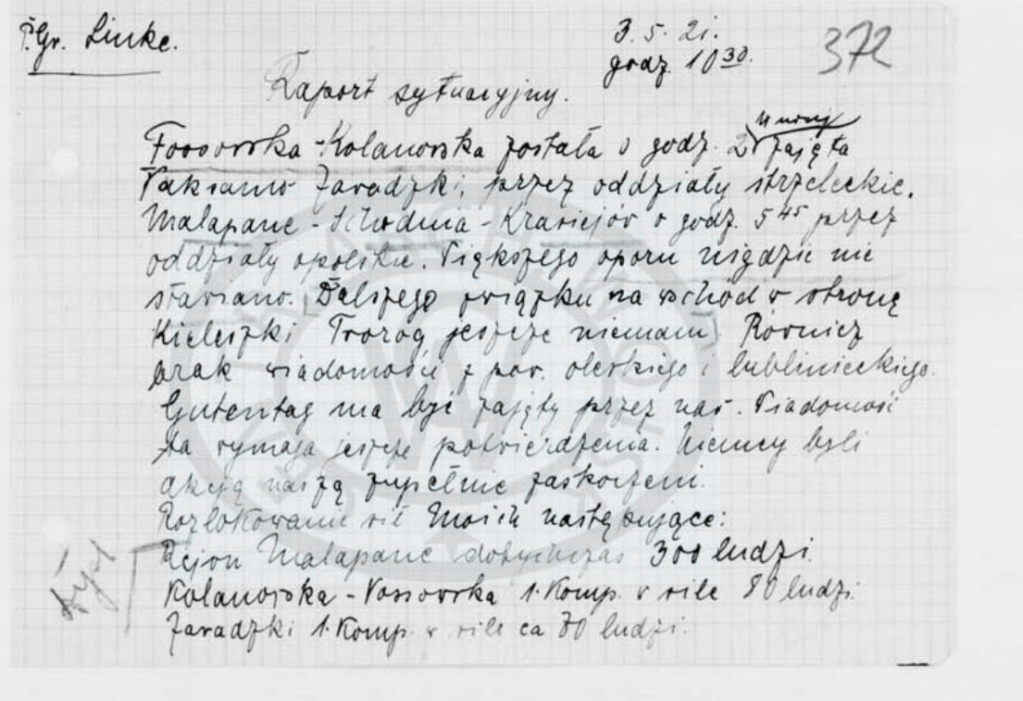 P.Gr. Linke.
3. 5. 21.
godz. 10 30.
372
Raport sytuacyjny.
w nocy
Fosowska-Kolanowska została o godz. 2 zajęta
Taksamo Zawadzki, przez oddziały strzeleckie.
Malapane - Schodnia - Krasiejów o godz. 5 45 przez
oddziały opolskie. Większego oporu nigdzie nie
stawiano. Dalszego związku na wschód w stronę
Kieleszki Tworog jeszcze niemam Również
brak wiadomości z pow. oleskiego i lublinieckiego.
Gutentag ma być zajęty przez nas. Wiadomość
ta wymaga jeszcze potwierdzenia. Niemcy byli
akcją naszą zupełnie zaskoczeni.
Rozlokowanie sił moich następujące:
Rejon Malapane dotychczas 300 ludzi.
Kolanowska - Vossowska 1. Komp. w sile 80 ludzi.
Zawadzki 1. Komp. w sile ca 70 ludzi.